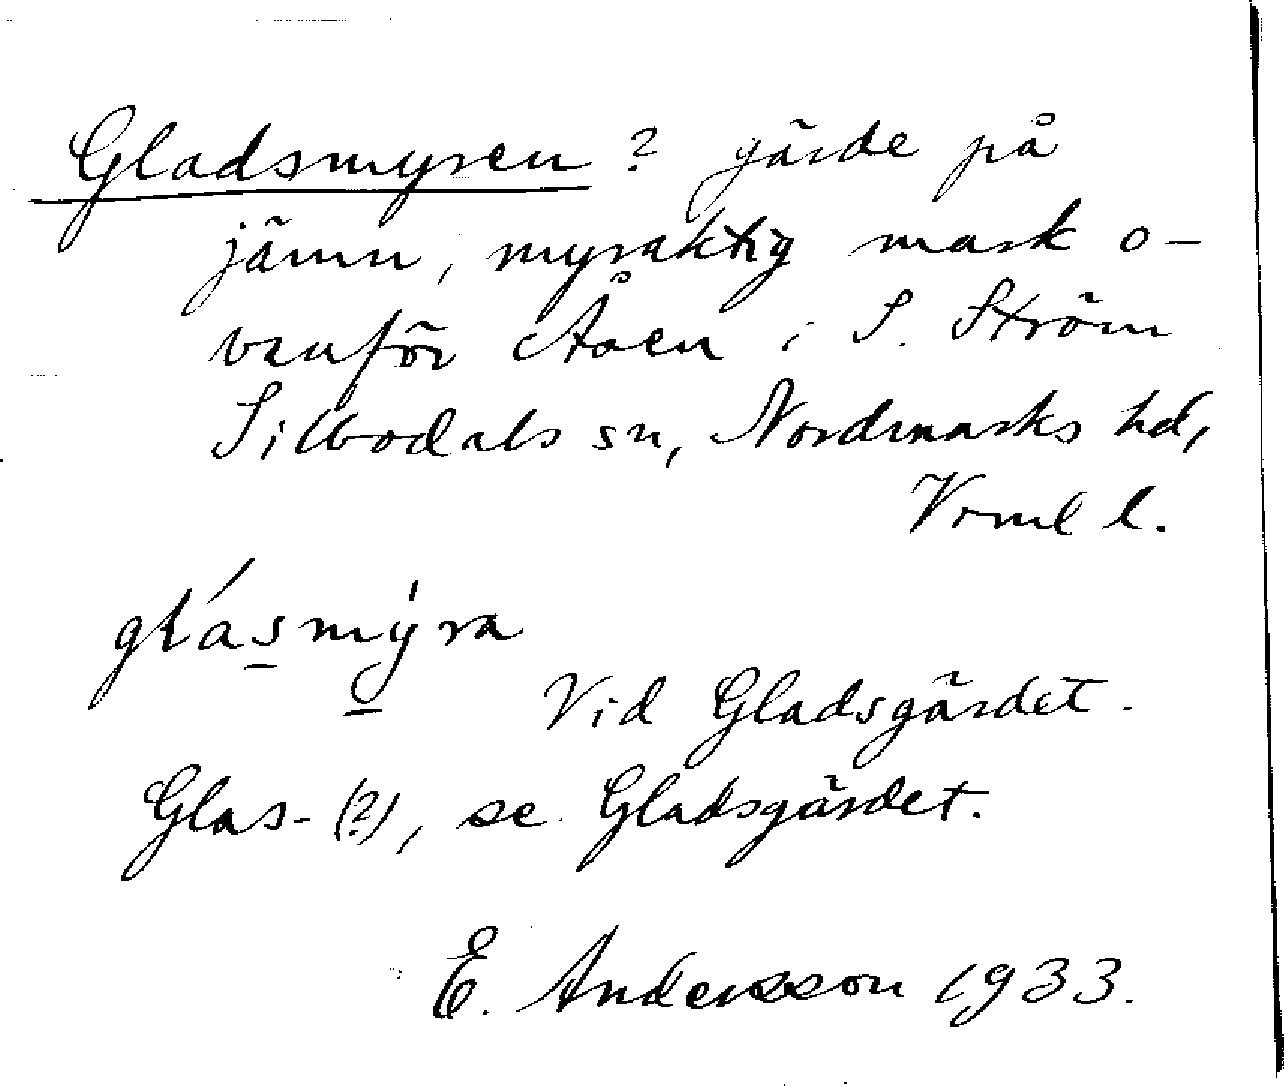 Gladsmyren ? gärde på
jämn, myraktig mark o-
vanför Åoen i S. Ström
Silbodals sn, Nordmarks hd,
Vrml l.
glásmýra
Vid Gladsgärdet.
Glas- (?), se Gladsgärdet.
E. Andersson 1933.